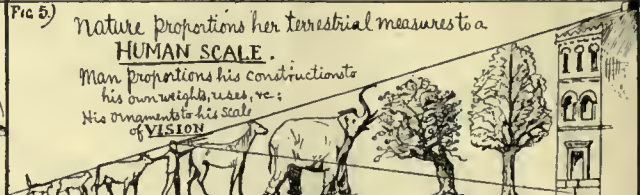 FIG 5.)
Nature proportions her terrestrial measures to a
HUMAN SCALE.
Man proportions his constructions to
his own weights, uses, &c:
His ornaments to his scale
of VISION